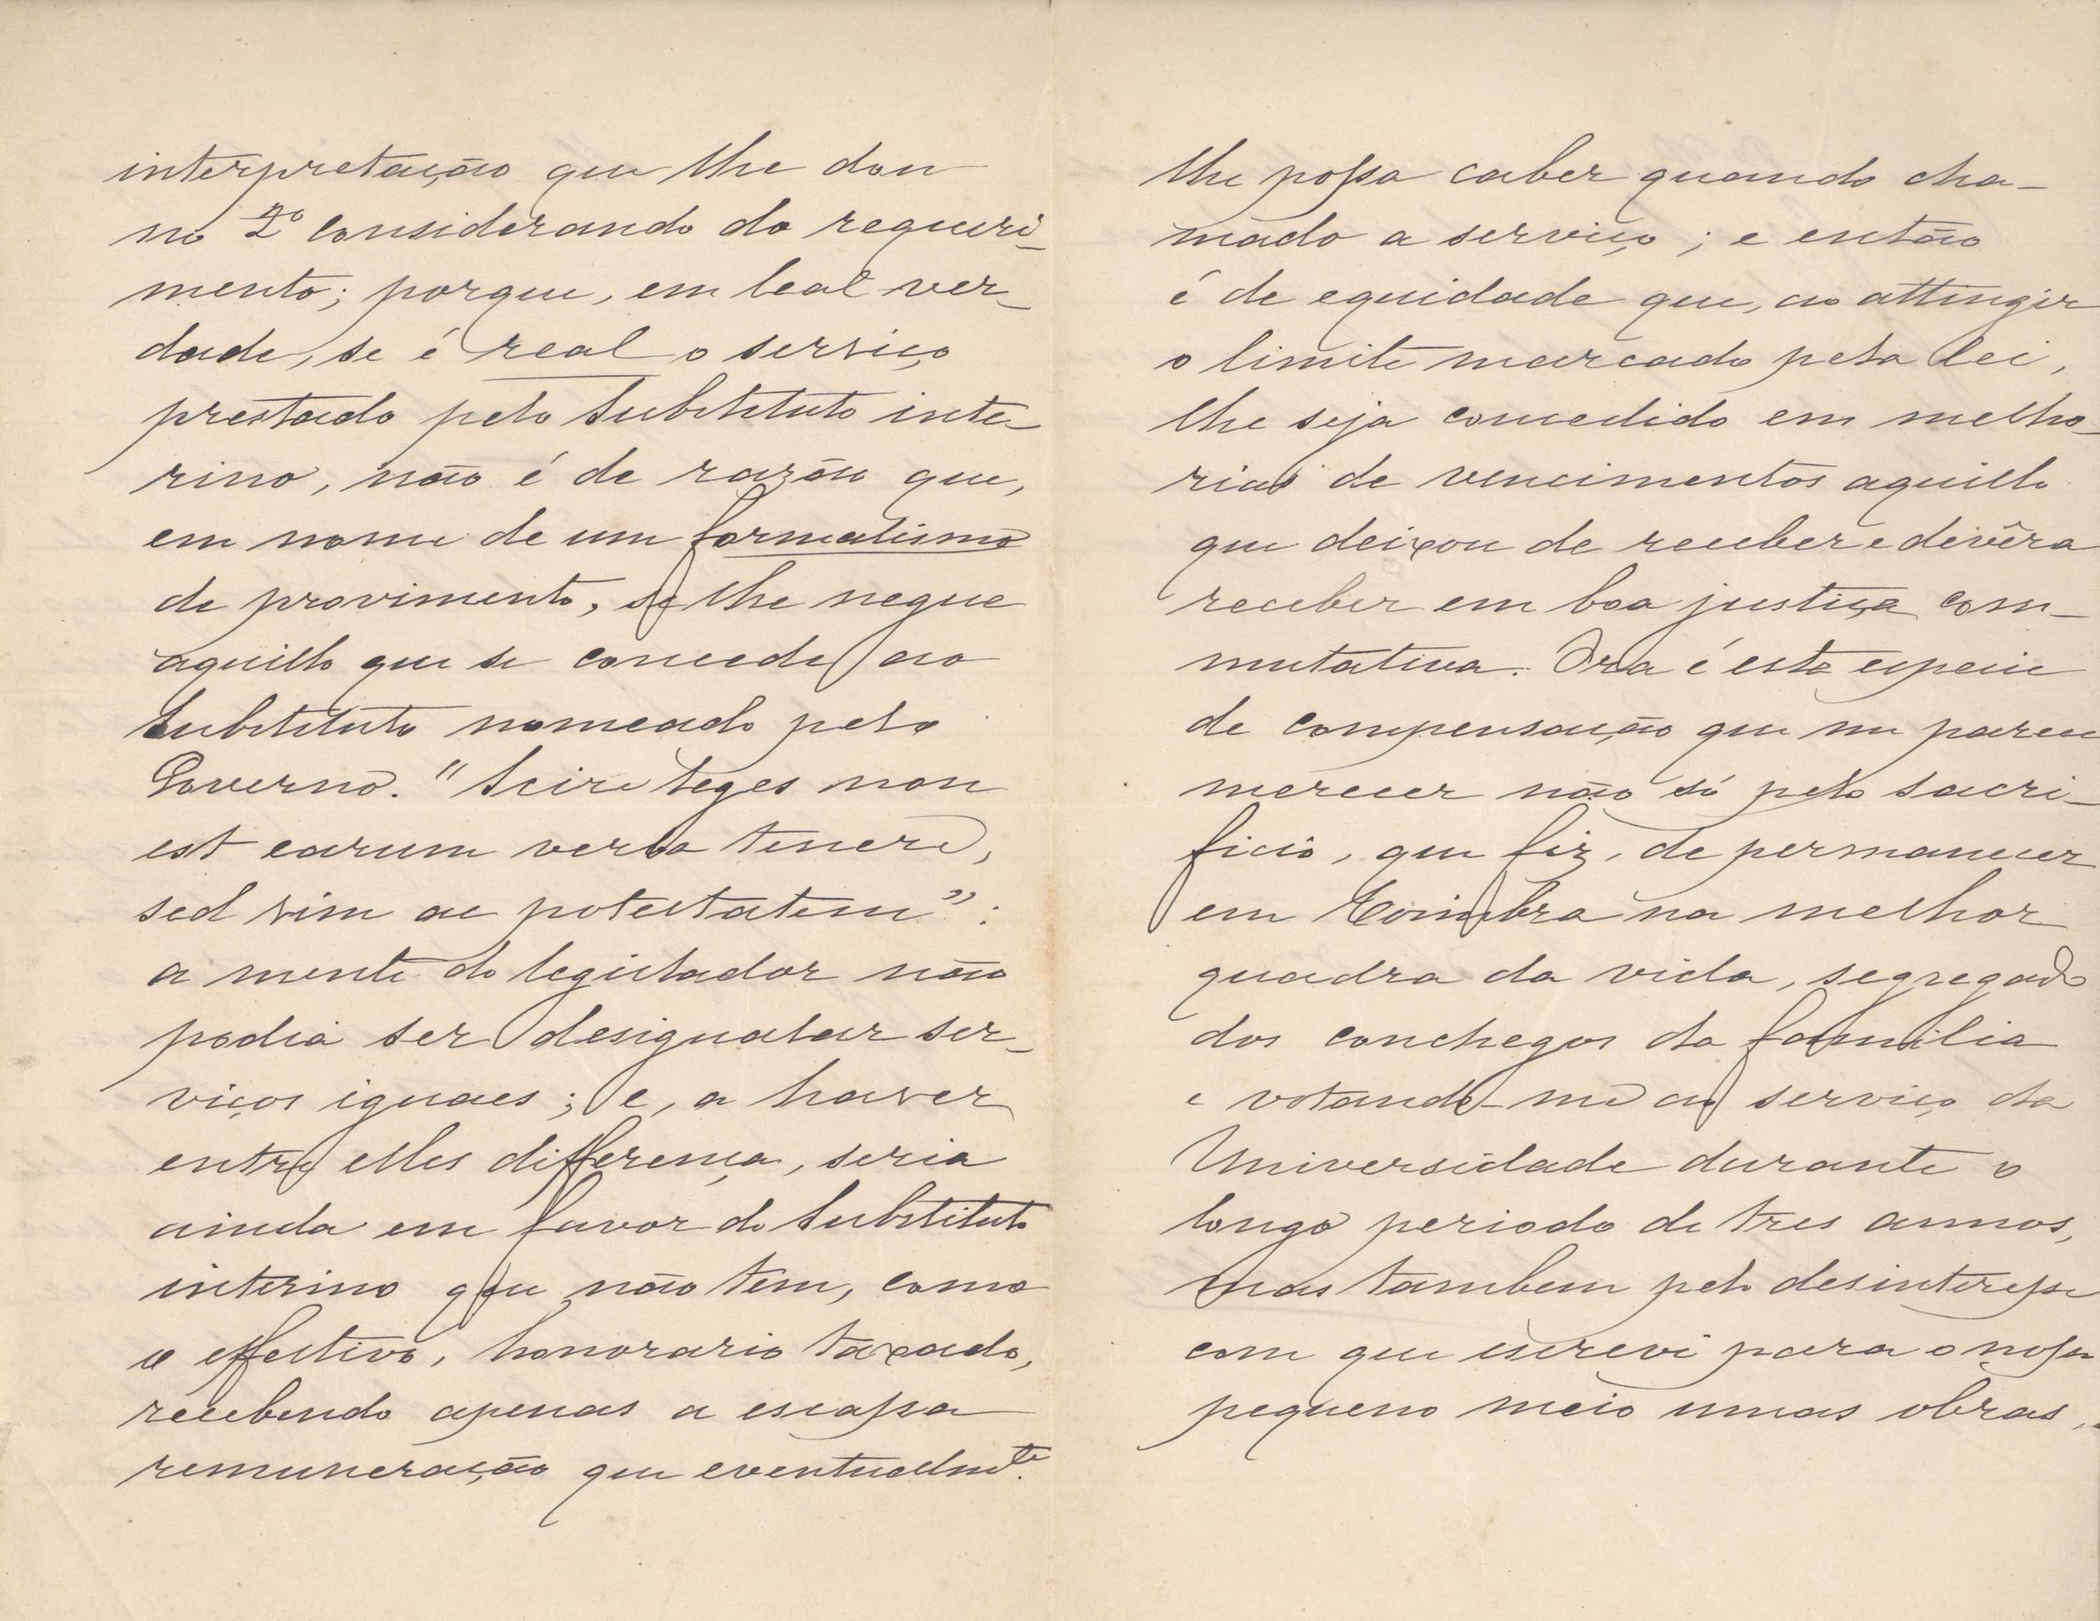 interpretação que lhe dou
no 2º considerando do requeri-
mento; porque, em leal ver-
dade, se é real o serviço
prestado pelo substituto inte-
rino, não é de razão que,
em nome de um formalismo
de provimento, se lhe negue
aquillo que se concede ao
substituto nomeado pelo
Governo. "Scire leges non
est earum verba tenere,
sed vim ac potestatem":
a mente do legislador não
podia ser desigualar ser-
viços iguaes; e, a haver
entre elles differença, seria
ainda em favor do substituto
interino que não tem, como
o effectivo, honorario taxado,
recebendo apenas a escassa
remuneração que eventualm.te
lhe possa caber quando cha-
mado a serviço; e então
é de equidade que, ao attingir
o limite marcado pela lei,
lhe seja concedido em melho-
rias de vencimentos aquillo
que deixou de receber e devêra
receber em boa justiça com-
mutativa. Ora é esta especie
de compensação que me parece
merecer não só pelo sacri-
ficio, que fiz, de permanecer
em Coimbra na melhor
quadra da vida, segregado
dos conchegos da familia
e votando-me ao serviço da
Universidade durante o
longo periodo de tres annos,
mas tambem pelo desinteresse
com que escrevi para o nosso
pequeno meio umas obras,